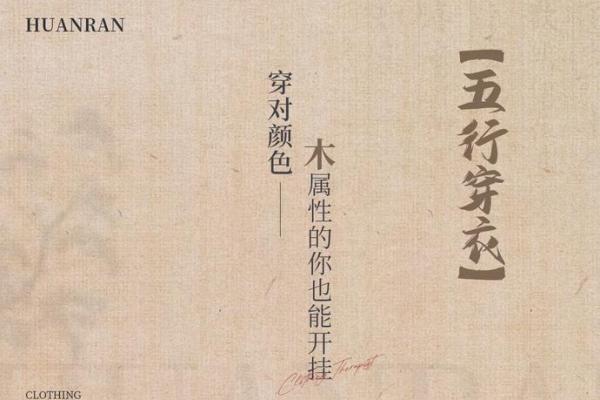 HUANRAN
【五行穿衣】
穿对颜色——
木属性的你也能开挂
Clothing Therapist
CLOTHING